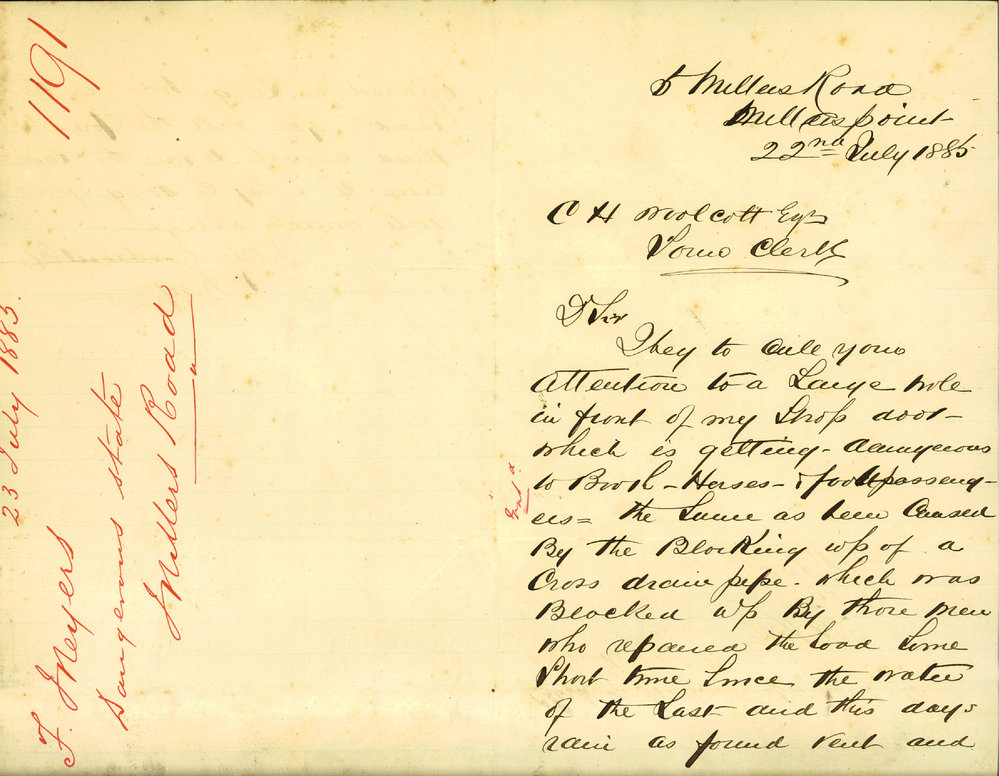 1191
23 July 1885
F. Meyers
Dangerous state
Millers Road
6 Millers Road
Millers point
22nd July 1885
C H Woolcott Esqr
Town Clerk
Dr Sir
I beg to Calle your
Attention to a Large hole
in front of my Shop door -
which is getting - dangerous
to Booth - Horses - & foottpasseng-
ers = the Same as been Caused
By the Blocking up of a
Cross drain pipe. which was
Blocked up By those men
who repaired the Road Some
Short time Since the water
of the Last and this days
rain as found vent and